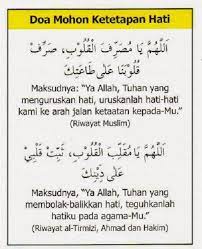 Doa Mohon Ketetapan Hati
اَللَّهُمَّ يَا مُصَرِّفَ الْقُلُوْبِ، صَرِّفْ
قُلُوْبَنَا عَلَى طَاعَتِكَ
Maksudnya: “Ya Allah, Tuhan yang
menguruskan hati, uruskanlah hati-hati
kami ke arah jalan ketaatan kepada-Mu.”
(Riwayat Muslim)
اَللَّهُمَّ يَا مُقَلِّبَ الْقُلُوْبِ، ثَبِّتْ قَلْبِيْ
عَلَى دِيْنِكَ
Maksudnya, “Ya Allah, Tuhan yang
membolak-balikkan hati, teguhkanlah
hatiku pada agama-Mu.”
(Riwayat al-Tirmizi, Ahmad dan Hakim)